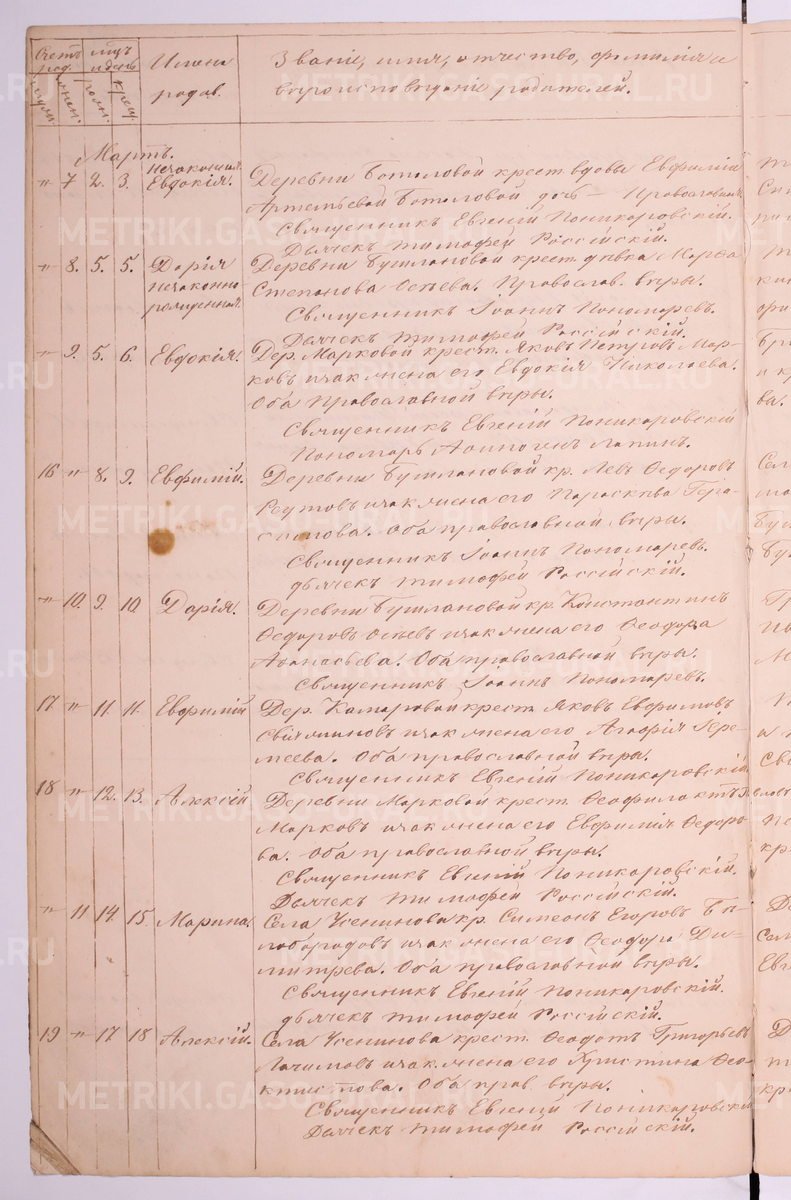 Счетъ род. мцъ и день Имена родив. Званіе, имя, отчество, фамилія и
муж. женс. рожд. крещ. вѣроисповѣданіе родителей.
Мартъ.
незаконная
" 7 2. 3. Евдокія. Деревни Ботоловой крест. вдовы Евфиміи
Артемьевой Ботоловой дочь — Православная.
Священникъ Евгеній Поникаровскій.
Дьячекъ Тимофей Россійскій.
" 8. 5. 5. Дарія Деревни Бушлановой крест. дѣвка Марѳа
незаконно- Степанова Осѣева. Православ. вѣры.
рожденная. Священникъ Іоаннъ Пономаревъ.
Дьячекъ Тимофей Россійскій.
" 9. 5. 6. Евдокія. Дер. Марковой крест. Яковъ Петровъ Мар-
ковъ и зак. жена его Евдокія Николаева.
Оба Православной вѣры.
Священникъ Евгеній Поникаровскій
Пономарь Аѳиногенъ Лапинъ.
16 " 8. 9. Евфимій. Деревни Бушлановой кр. Левъ Ѳедоровъ
Реутовъ и зак. жена его Параскева Гера-
симова. Оба православной вѣры.
Священникъ Іоаннъ Пономаревъ.
дьячекъ Тимофей Россійскій.
" 10. 9. 10. Дарія. Деревни Бушлановой кр. Константинъ
Ѳедоровъ Осѣевъ и зак. жена его Ѳеодора
Аѳанасьева. Оба православной вѣры.
Священникъ Іоаннъ Пономаревъ.
17 " 11. 11. Евфимій Дер. Комаровой крест. Яковъ Евфимовъ
и зак. жена его Агафія Ере-
меева. Оба православной вѣры.
Священникъ Евгеній Поникаровскій
18 " 12. 13. Алексій Деревни Марковой крест. Ѳеофилактъ
Марковъ и зак. жена его Евфимія Ѳедоро-
ва. Оба православной вѣры.
Священникъ Евгеній Поникаровскій.
Дьячекъ Тимофей Россійскій.
" 11 14. 15. Марина. Села Усенинова кр. Симеонъ Егоровъ Бѣ-
лобородовъ и зак. жена его Ѳеодора Ди-
митрева. Оба православной вѣры.
Священникъ Евгеній Поникаровскій.
дьячекъ Тимофей Россійскій.
19 " 17 18 Алексій. Села Усенинова крест. Ѳеодотъ Григорьевъ
Лачимовъ и зак. жена его Христина Ѳео-
ктистова. Оба прав. вѣры.
Священникъ Евгеній Поникаровскій
Дьячекъ Тимофей Россійскій.
METRIKI.GASO-URAL.RU